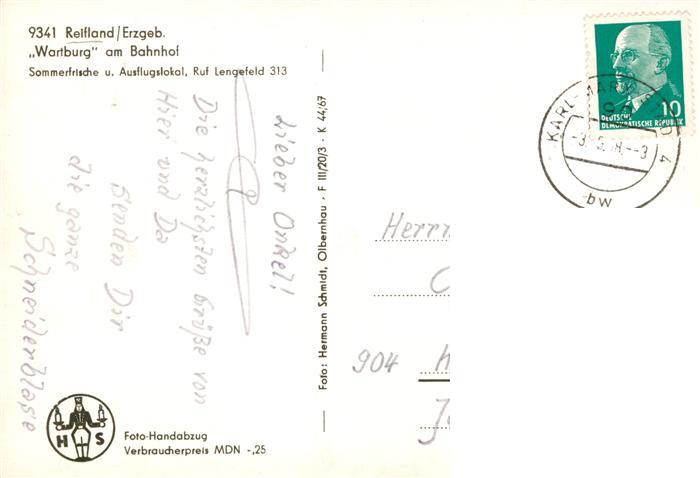 9341 Reifland/Erzgeb.
„Wartburg" am Bahnhof
Sommerfrische u. Ausflugslokal, Ruf Lengefeld 313
Lieber Onkel!
Die herzlichsten Grüße von
Hier und Da
senden Dir
die ganze
Schneiderblase
H S
Foto-Handabzug
Verbraucherpreis MDN -,25
Foto: Hermann Schmidt, Olbernhau · F III/20/3 · K 44/67
10
DEUTSCHE
DEMOKRATISCHE REPUBLIK
KARL-MARX-STADT 4
bw
Herrn
904